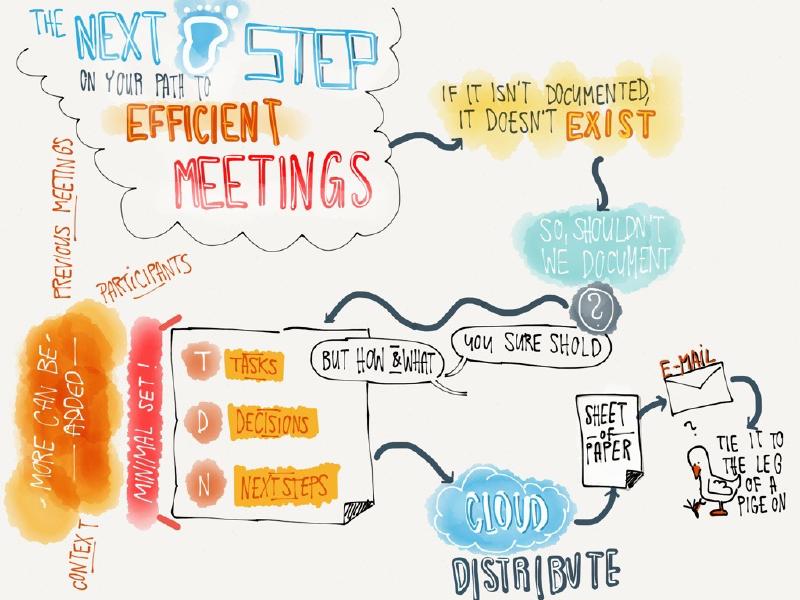 THE NEXT STEP
ON YOUR PATH TO
EFFICIENT
MEETINGS
IF IT ISN'T DOCUMENTED,
IT DOESN'T EXIST
SO, SHOULDN'T
WE DOCUMENT
?
YOU SURE SHOLD
BUT HOW & WHAT
PREVIOUS MEETINGS
PARTICIPANTS
- MORE CAN BE -
— ADDED —
CONTEXT
MINIMAL SET!
T TASKS
D DECISIONS
N NEXT STEPS
CLOUD
DISTRIBUTE
SHEET
OF
PAPER
E-MAIL
?
TIE IT TO
THE LEG
OF A
PIGEON